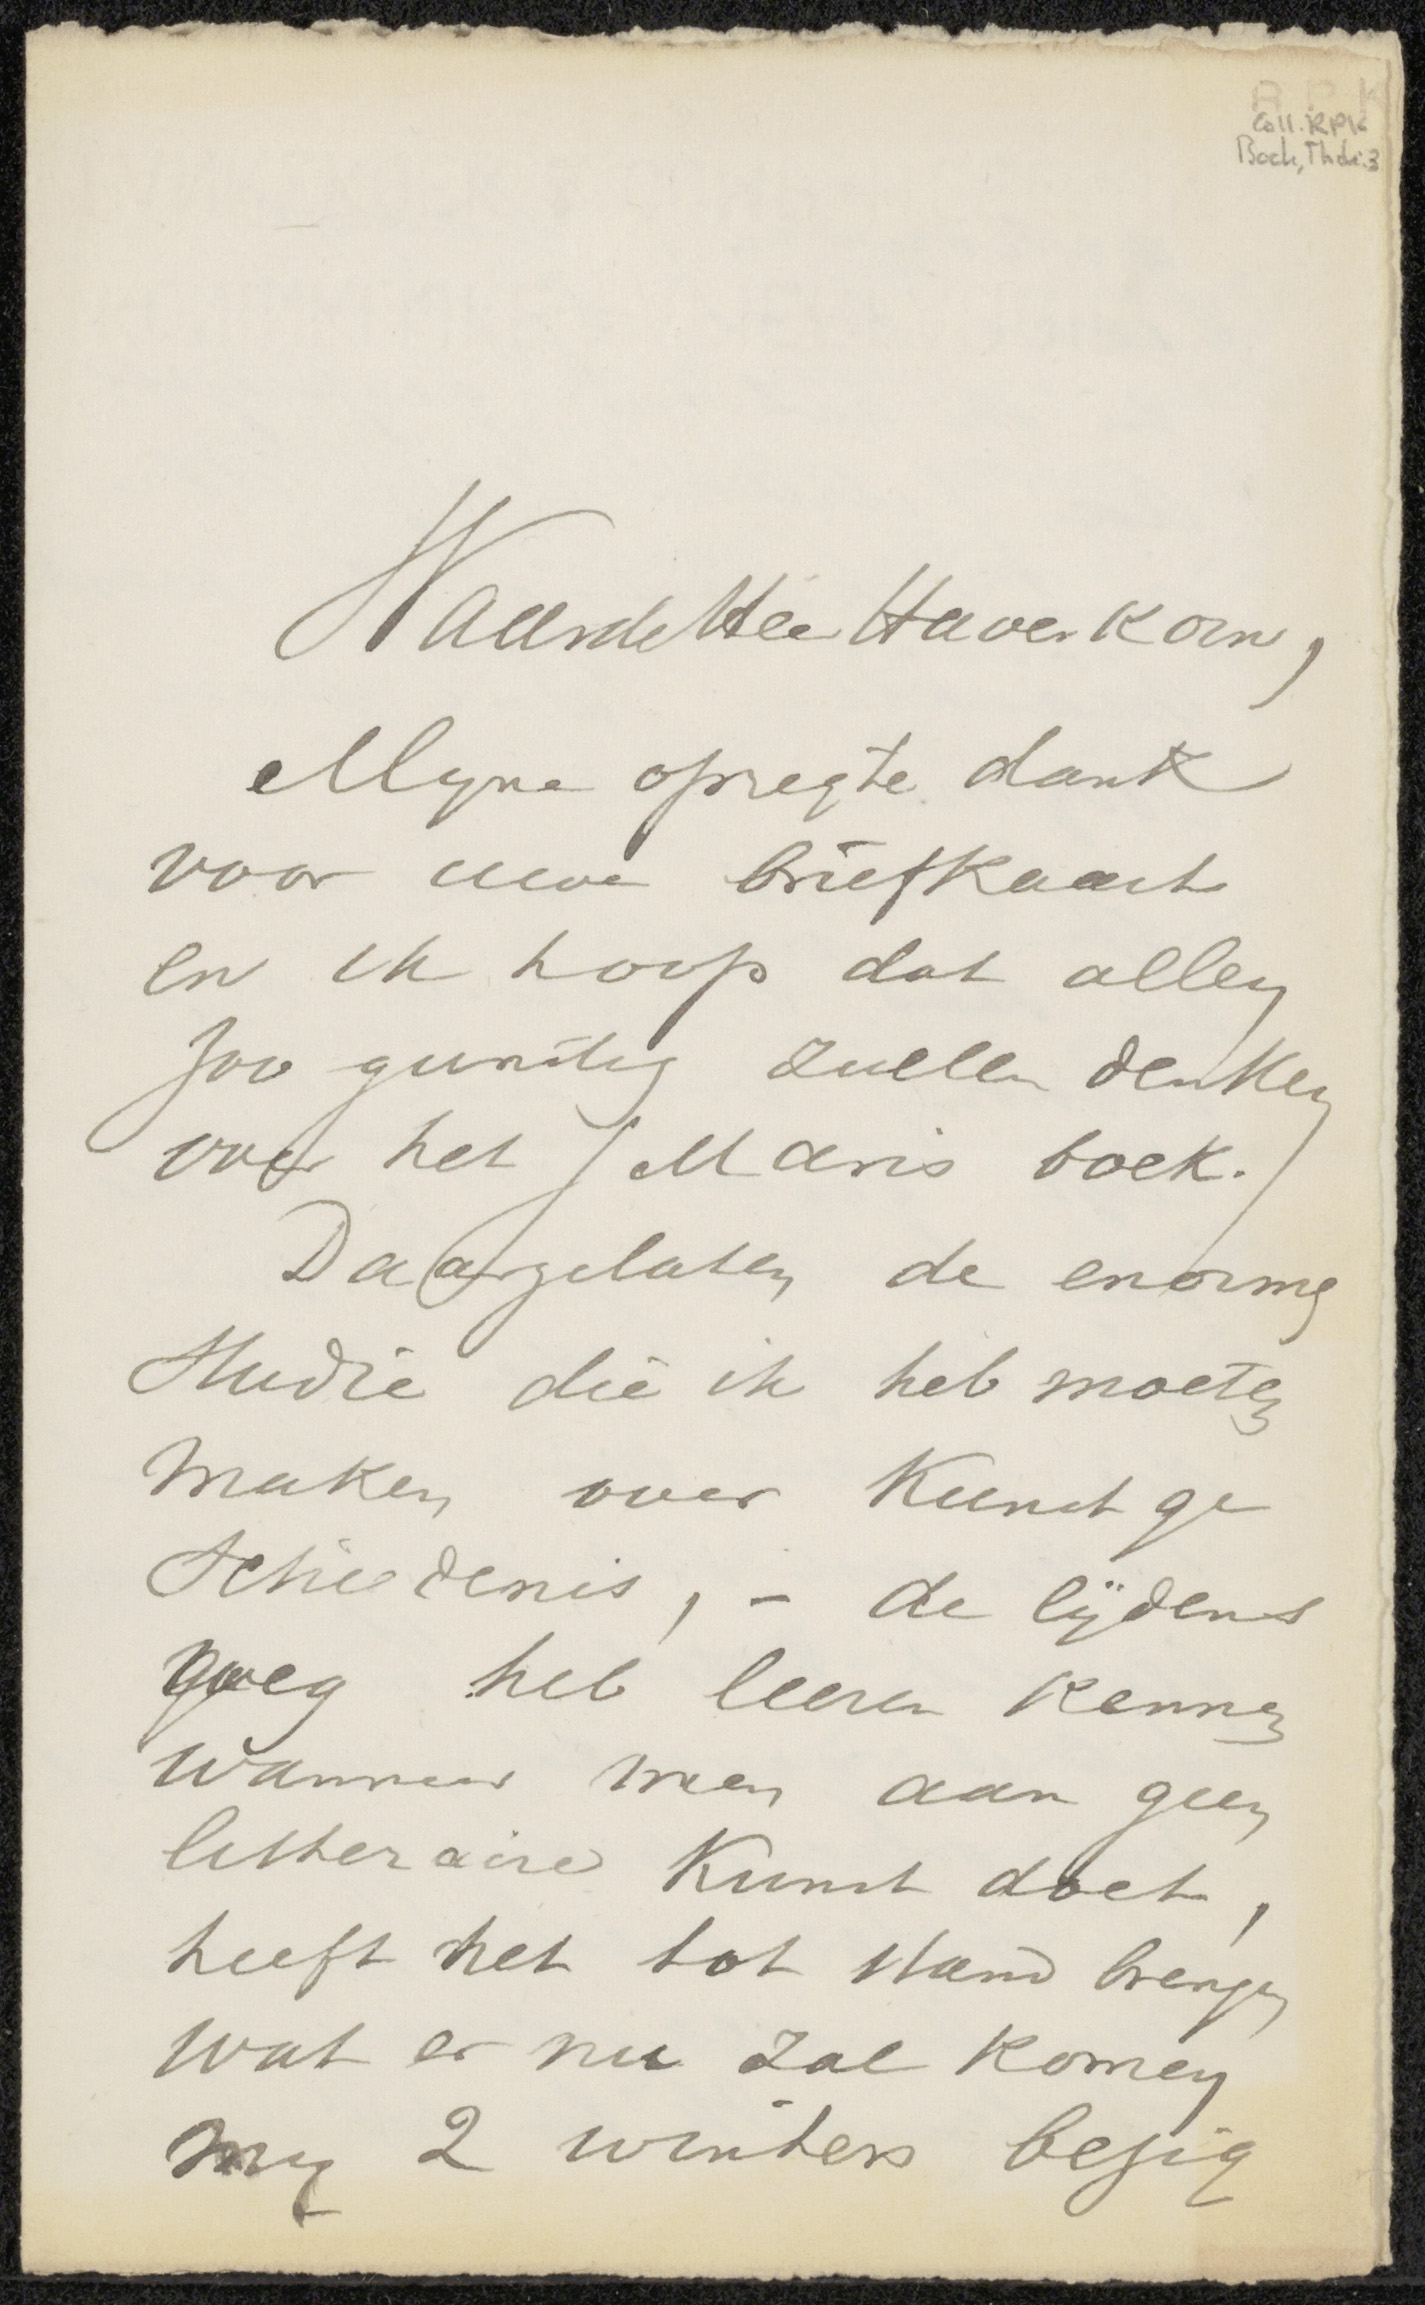 R P K
Coll. RPK
Bock, Th de: 3
Waarde Heer Haverkorn,
Myne opregte dank
voor uwe briefkaart
en ik hoop dat allen
zoo gunstig zullen denken
over het J Maris boek.
Daargelaten de enorme
studie die ik heb moeten
maken over Kunst ge
schiedenis, - de lijdens
weg heb leeren kennen
wanneer men aan geen
litteraire Kunst doet,
heeft het tot stand brengen
wat er nu zal komen
my 2 winters bezig